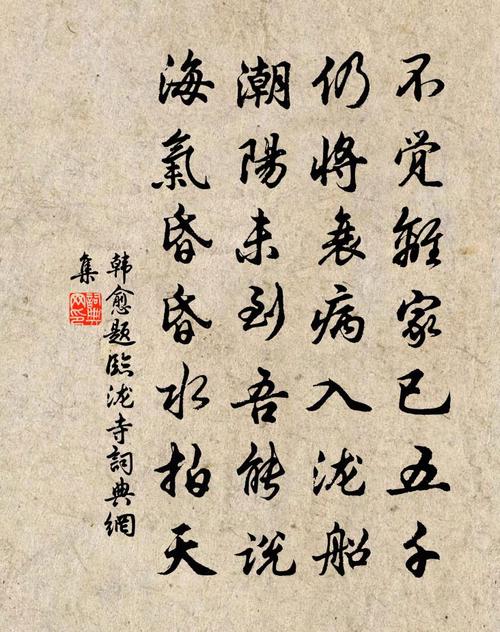 不觉離家已五千
仍将衰病入泷船
潮陽未到吾能说
海氣昏昏水拍天
韓愈题臨泷寺詞典網
集
詞典
网印